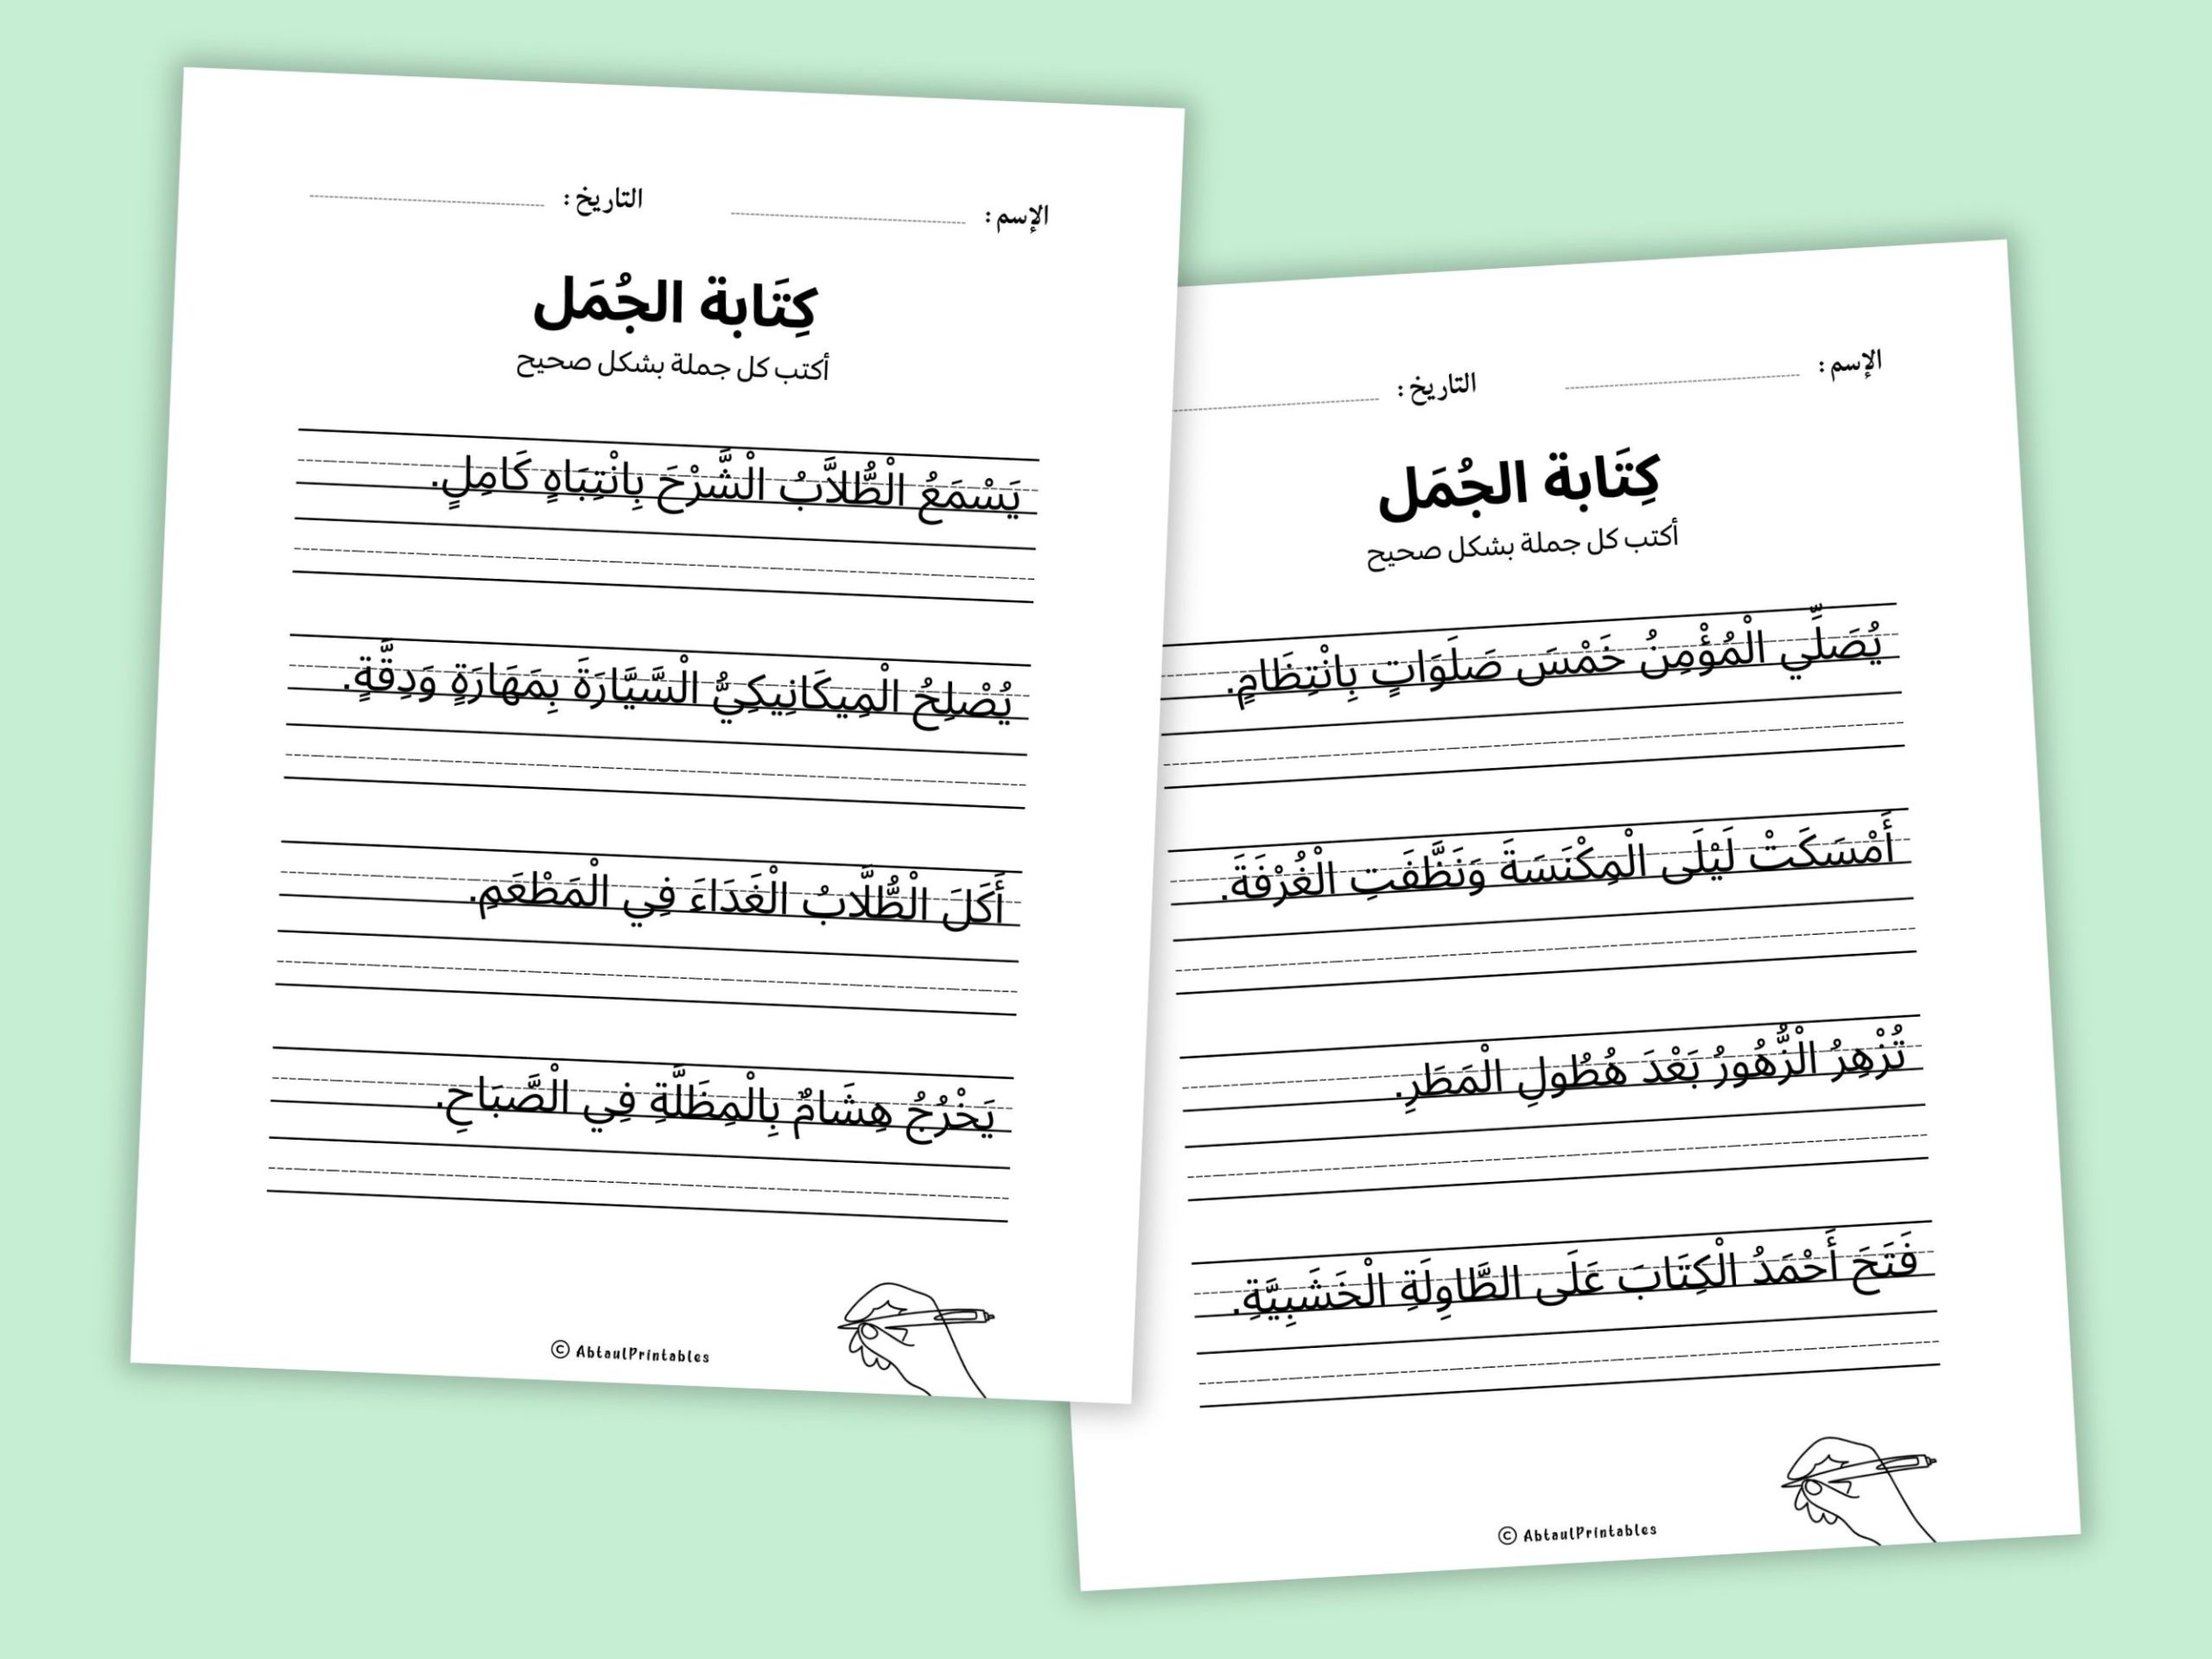 الإسم : التاريخ :
كِتَابة الجُمَل
أكتب كل جملة بشكل صحيح
يَسْمَعُ الْطُّلاَّبُ الْشَّرْحَ بِانْتِبَاهٍ كَامِلٍ.
يُصْلِحُ الْمِيكَانِيكِيُّ الْسَّيَّارَةَ بِمَهَارَةٍ وَدِقَّةٍ.
أَكَلَ الْطُّلَّابُ الْغَدَاءَ فِي الْمَطْعَمِ.
يَخْرُجُ هِشَامٌ بِالْمِظَلَّةِ فِي الْصَّبَاحِ.
© AbtaulPrintables
الإسم : التاريخ :
كِتَابة الجُمَل
أكتب كل جملة بشكل صحيح
يُصَلِّي الْمُؤْمِنُ خَمْسَ صَلَوَاتٍ بِانْتِظَامٍ.
أَمْسَكَتْ لَيْلَى الْمِكْنَسَةَ وَنَظَّفَتِ الْغُرْفَةَ.
تُزْهِرُ الْزُّهُورُ بَعْدَ هُطُولِ الْمَطَرِ.
فَتَحَ أَحْمَدُ الْكِتَابَ عَلَى الطَّاوِلَةِ الْخَشَبِيَّةِ.
© AbtaulPrintables